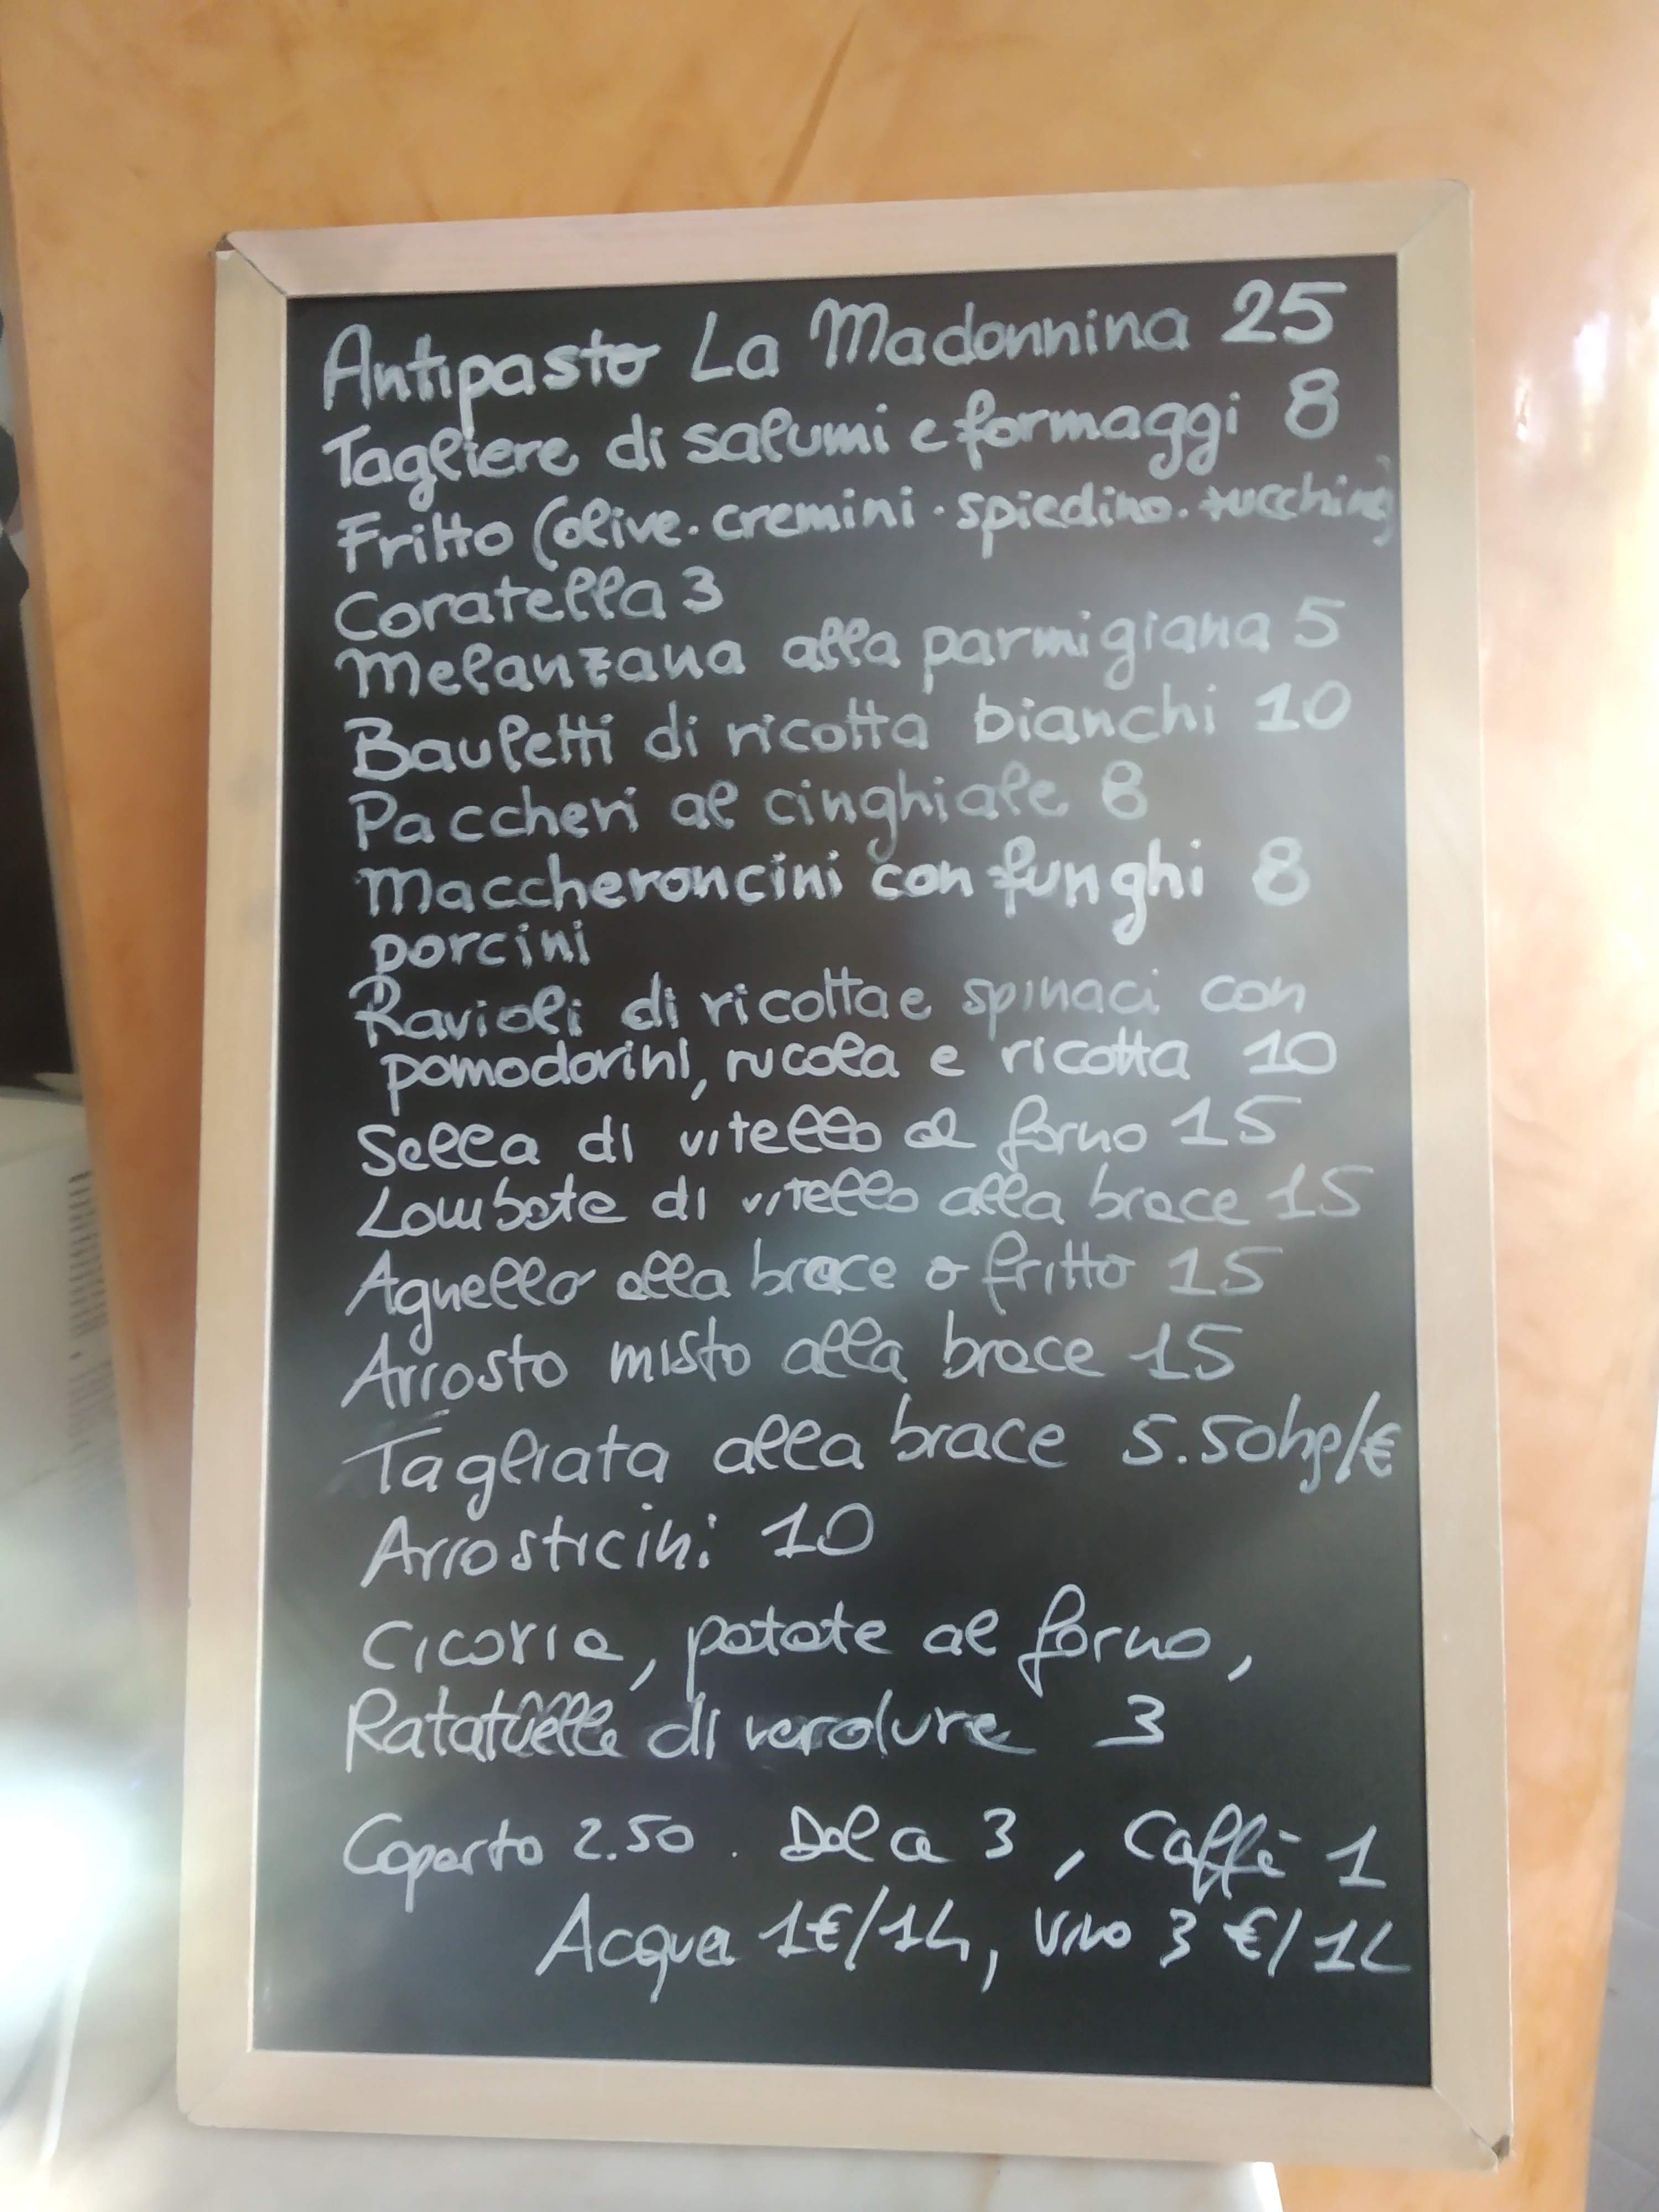 Antipasto La Madonnina 25
Tagliere di salumi e formaggi 8
Fritto (olive. cremini. spiedino. zucchine)
Coratella 3
Melanzana alla parmigiana 5
Bauletti di ricotta bianchi 10
Paccheri al cinghiale 8
Maccheroncini con funghi 8
porcini
Ravioli di ricotta e spinaci con
pomodorini, rucola e ricotta 10
Sella di vitello al forno 15
Lombate di vitello alla brace 15
Agnello alla brace o fritto 15
Arrosto misto alla brace 15
Tagliata alla brace 5.50hg/€
Arrosticini 10
Cicoria, patate al forno,
Ratatuelle di verdure 3
Coperto 2.50. Dolce 3, Caffè 1
Acqua 1€/1L, Vino 3 €/1L